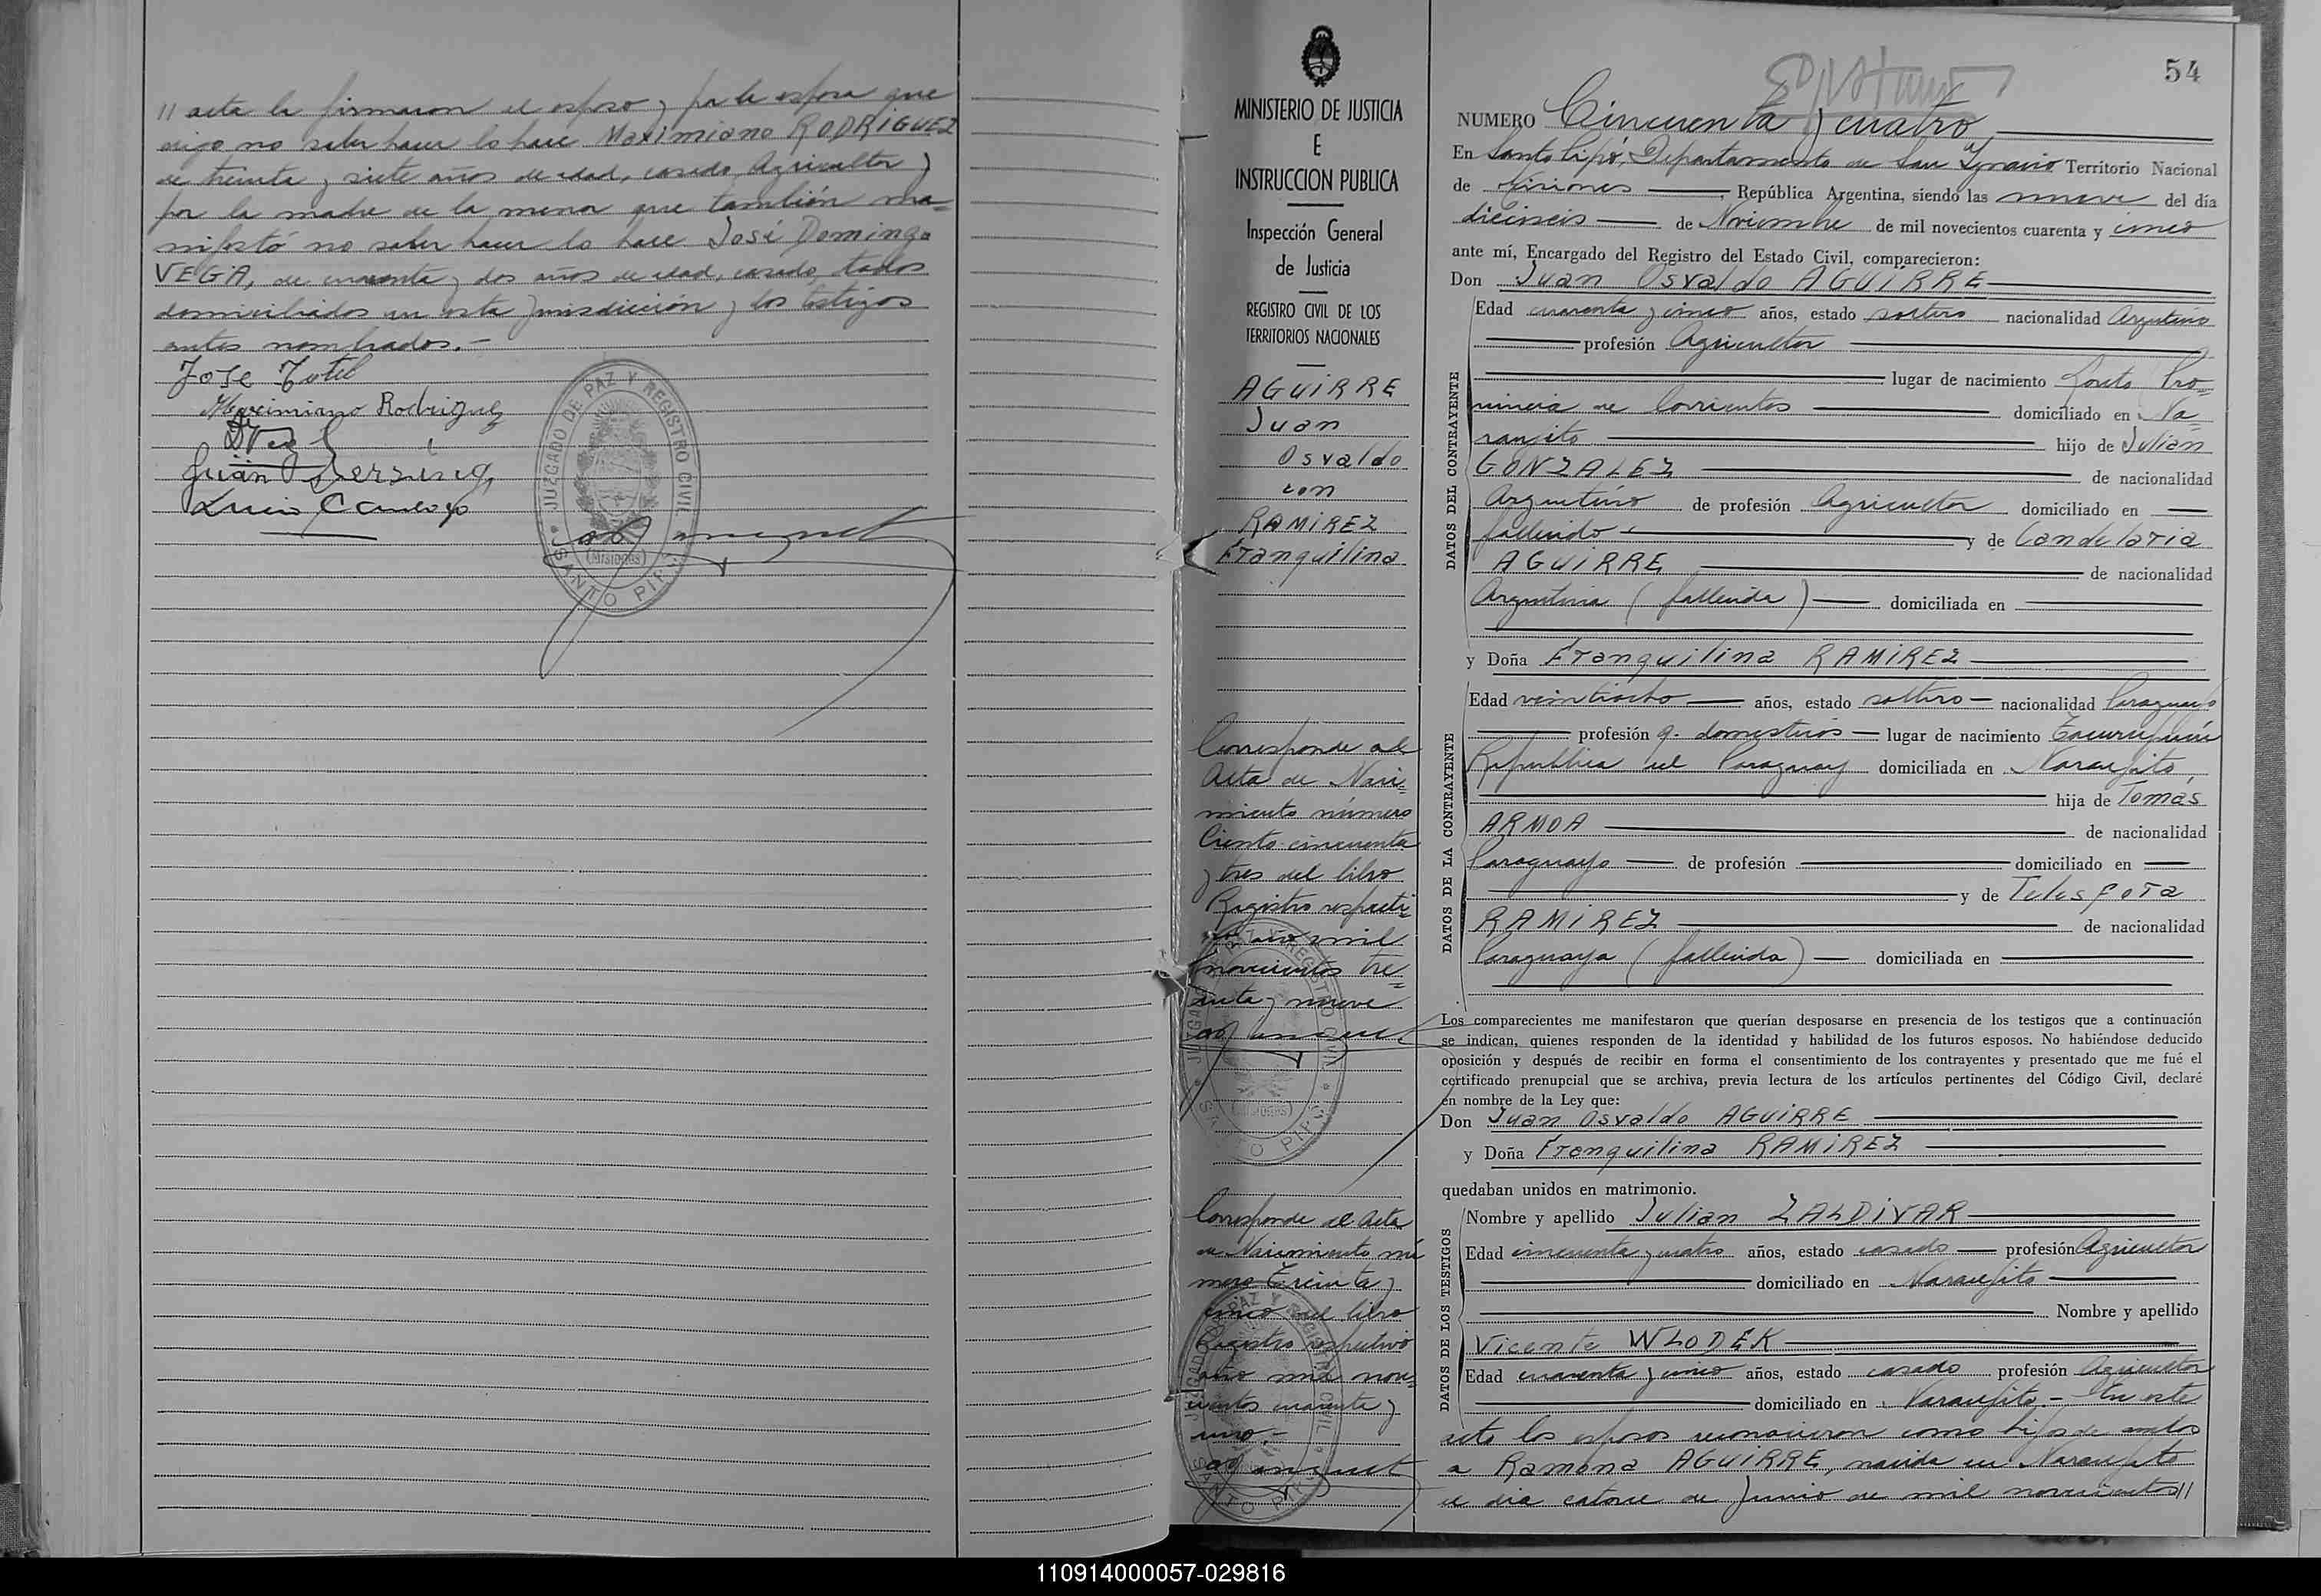 // acta la firmaron el esposo y por la esposa que
dijo no saber hacer lo hace Maximiano RODRIGUEZ
de treinta y siete años de edad, casado, Agricultor y
por la madre de la menor que también ma=
nifestó no saber hacer lo hace José Domingo
VEGA, de cuarenta y dos años de edad, casado, todos
domiciliados en esta jurisdicción y los testigos
antes nombrados.-
Jose
Maximiano Rodriguez
Juan
Luis
JUZGADO DE PAZ Y REGISTRO CIVIL
(Misiones)
SANTO PIPÓ
MINISTERIO DE JUSTICIA
E
INSTRUCCION PUBLICA
Inspección General
de Justicia
REGISTRO CIVIL DE LOS
TERRITORIOS NACIONALES
AGUIRRE
Juan
Osvaldo
con
RAMIREZ
Tranquilina
Corresponde al
Acta de Naci=
miento número
Ciento cincuenta
y tres del libro
Registro respecti=
vo año mil
novecientos tre=
inta y nueve
Corresponde al Acta
de Nacimiento nú
mero Treinta y
cinco del libro
Registro respectivo
año mil nove=
cientos cuarenta y
uno.-
54
NUMERO Cincuenta y cuatro
En Santo Pipó, Departamento de San Ignacio Territorio Nacional
de Misiones, República Argentina, siendo las nueve del día
dieciseis de Noviembre de mil novecientos cuarenta y cinco
ante mí, Encargado del Registro del Estado Civil, comparecieron:
Don Juan Osvaldo AGUIRRE
DATOS DEL CONTRAYENTE
Edad cuarenta y cinco años, estado soltero nacionalidad Argentino
profesión Agricultor
lugar de nacimiento Loreto Pro=
vincia de Corrientes domiciliado en Na=
ranjito hijo de Julian
GONZALEZ de nacionalidad
Argentino de profesión Agricultor domiciliado en
fallecido y de Candelaria
AGUIRRE de nacionalidad
Argentina (fallecida) domiciliada en
y Doña Tranquilina RAMIREZ
DATOS DE LA CONTRAYENTE
Edad veintiocho años, estado soltero nacionalidad Paraguayo
profesión q. domesticos lugar de nacimiento
República del Paraguay domiciliada en Naranjito,
hija de Tomás
ARMOA de nacionalidad
Paraguayo de profesión domiciliado en
y de Telesfora
RAMIREZ de nacionalidad
Paraguaya (fallecida) domiciliada en
Los comparecientes me manifestaron que querían desposarse en presencia de los testigos que a continuación
se indican, quienes responden de la identidad y habilidad de los futuros esposos. No habiéndose deducido
oposición y después de recibir en forma el consentimiento de los contrayentes y presentado que me fué el
certificado prenupcial que se archiva, previa lectura de los artículos pertinentes del Código Civil, declaré
en nombre de la Ley que:
Don Juan Osvaldo AGUIRRE
y Doña Tranquilina RAMIREZ
quedaban unidos en matrimonio.
DATOS DE LOS TESTIGOS
Nombre y apellido Julian ZALDIVAR
Edad cincuenta y cuatro años, estado casado profesión Agricultor
domiciliado en Naranjito
Nombre y apellido
Vicente WLODEK
Edad cuarenta y cinco años, estado casado profesión Agricultor
domiciliado en Naranjito.- En este
acto los esposos reconocieron como hijos de ambos
a Ramona AGUIRRE, nacida en Naranjito
el dia catorce de Junio de mil novecientos //
110914000057-029816